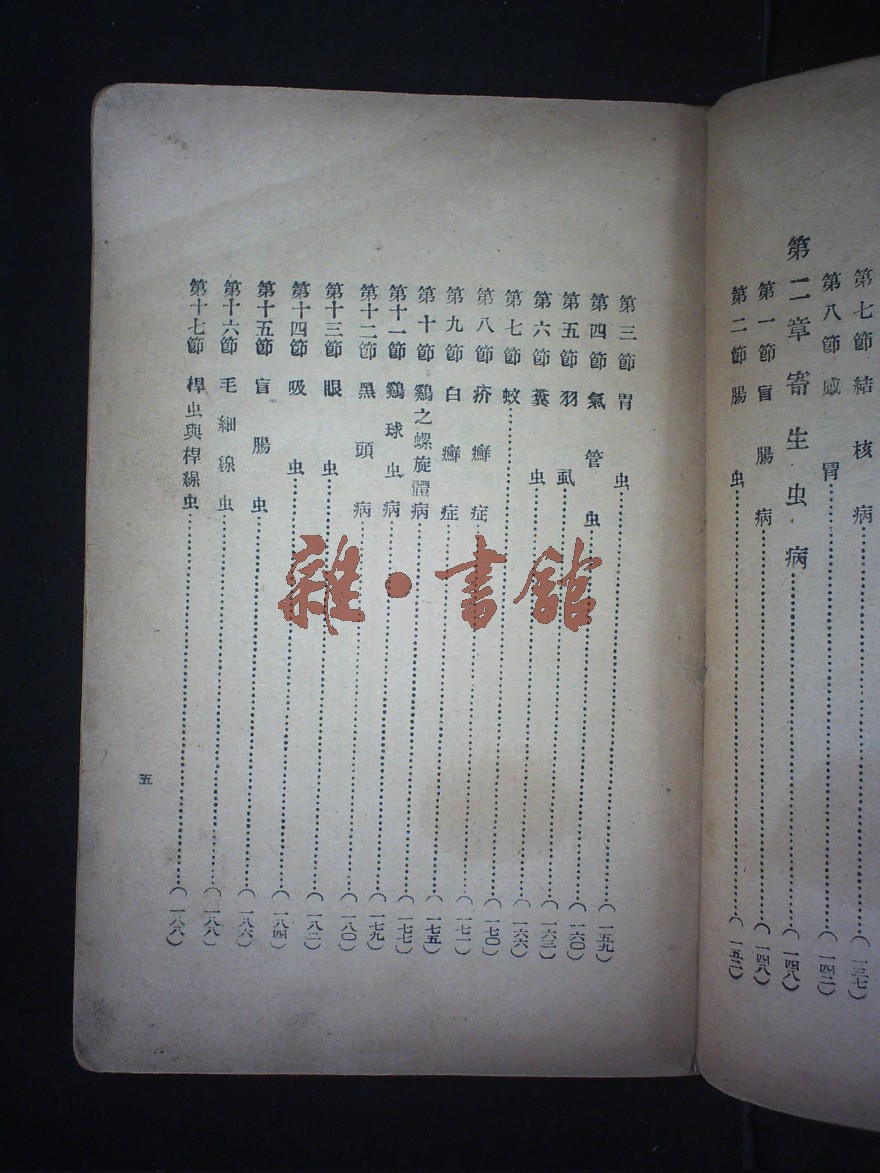 第七節 結核病……(一三七)
第八節 感冒……(一四二)
第二章 寄生虫病……(一四八)
第一節 盲腸病……(一四八)
第二節 腸虫……(一五二)
第三節 胃虫……(一五九)
第四節 氣管虫……(一六〇)
第五節 羽虱……(一六三)
第六節 糞虫……(一六六)
第七節 蚊……(一七〇)
第八節 疥癬症……(一七一)
第九節 白癬症……(一七五)
第十節 鷄之螺旋體病……(一七七)
第十一節 鷄球虫病……(一七九)
第十二節 黑頭病……(一八〇)
第十三節 眼虫……(一八二)
第十四節 吸虫……(一八四)
第十五節 盲腸虫……(一八六)
第十六節 毛細線虫……(一八八)
第十七節 桿虫與桿線虫……(一八八)
五
雜·書館